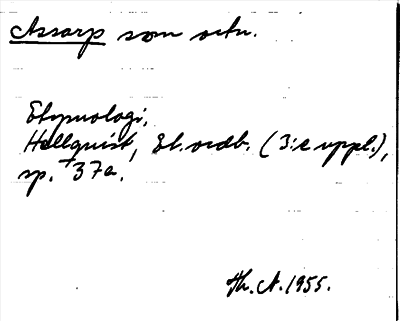 Assarp som ortn.
Etymologi,
Hellquist, Et. ordb. (3:e uppl.),
sp. 37a.
Th. A. 1955.